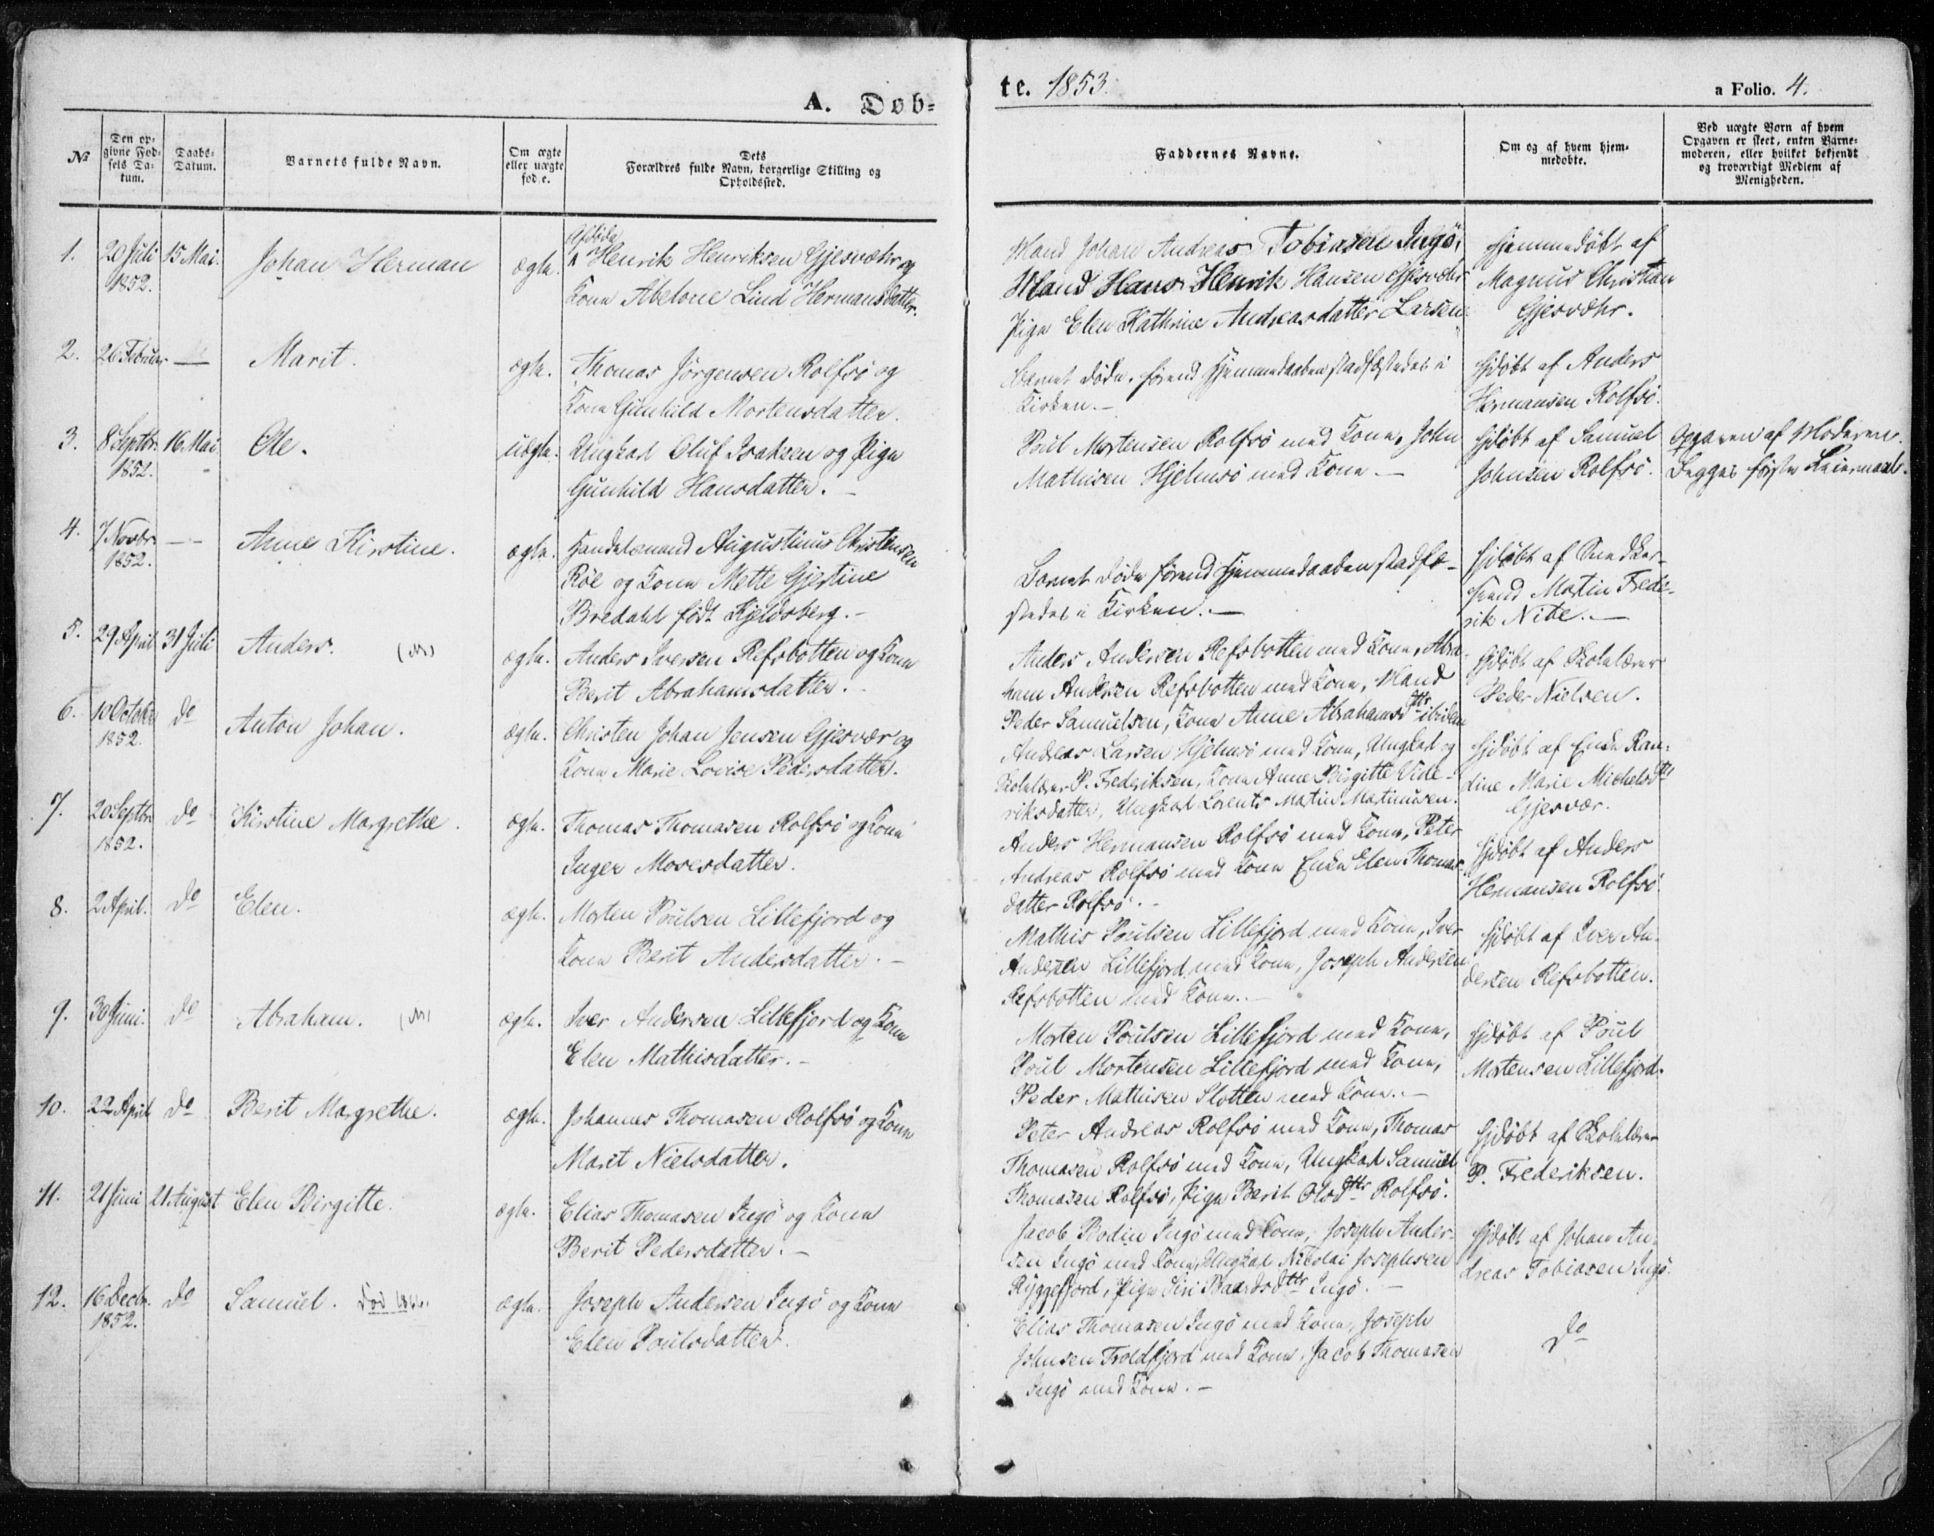 A. Døb=
te. 1853.
a Folio. 4.
No
Den op-
givne Fød-
sels Da-
tum.
Daabs-
Datum.
Barnets fulde Navn.
Om ægte
eller uægte
fød.e.
Dets
Forældres fulde Navn, borgerlige Stilling og
Opholdssted.
Faddernes Navne.
Om og af hvem hjem-
medøbte.
Ved uægte Børn af hvem
Opgaven er skeet, enten Barne-
moderen, eller hvilket bekjendt
og troværdigt Medlem af
Menigheden.
1. 20 Juli 15 Mai. Johan Herman ægte.
1852.
Afdøde
Henrik Henriksen Gjesvæhr og
Kone Abelone Lind Hermansdatter.
Mand Johan Andreas Tobiasen Ingö,
Mand Hans Henrik Hansen Gjesvæhr
Pige Elen Kathrine Andreasdatter Larsen
Hjemmedøbt af
Magnus Christian
Gjesvæhr.
2. 26 Februar — Marit. ægte.
Thomas Jörgensen Rolfsö og
Kone Gunhild Mortensdatter.
Barnet døde, førend Hjemmedaaben stadfæstedes i
Kirken.—
Hjdöbt af Anders
Hermansen Rolfsö.
3. 8 Septbr. 16 Mai Ole. uægte.
1852.
Ungkarl Oluf Isaksen og Pige
Gunhild Hansdatter. —
Poul Mortensen Rolfsö med Kone, John
Mathisen Hjelmsö med Kone —
Hjdöbt af Samuel
Johnsen Rolfsö.
Opgaven af Moderen.
Begges første Leiermaal.
4. 7 Novbr. — Anne Kirstine. ægte.
1852.
Handelsmand Augustinus Christensen
Röe og Kone Mette Gjestine
Bredahl født Kjeldsberg.—
Barnet døde førend Hjemmedaaben stadfæ-
stedes i Kirken. —
Hjdöbt af Snedker-
svend Martin Frede-
rik Nibe. —
5. 29 April 31 Juli Anders. (M) ægte.
Anders Iversen Refsbotten og Kone
Berit Abrahamsdatter.
Anders Andersen Refsbotten med Kone, Abra-
ham Andersen Refsbotten med Kone, Mand
Peder Samuelsen, Kone Anne Abrahamsdttr ibidem
Hjdöbt af Skolelærer
Peder Nielsen.
6. 10 October do Anton Johan. ægte.
1852.
Christen Johan Jensen Gjesvær og
Kone Marie Lovise Pedersdatter.
Andreas Larsen Hjelmsö med Kone, Ungkarl og
Skolelærer P. Frederiksen, Kone Anne Birgitte
riksdatter, Ungkarl Lorents Martin Martinusen.
Hjdöbt af Enke Ran-
dine Marie Michelsdtr
Gjesvær.
7. 20 Septbr. do Kirstine Margrethe. ægte.
1852.
Thomas Thomasen Rolfsö og Kone
Inger Mosesdatter.
Anders Hermansen Rolfsö med Kone, Peter
Andreas Rolfsö med Kone Enke Elen Thomas-
datter Rolfsö. —
Hjdöbt af Anders
Hermansen Rolfsö.
8. 2 April. do Elen. ægte.
Morten Poulsen Lillefjord og
Kone Berit Andersdatter. —
Mathis Poulsen Lillefjord med Kone, Iver
Andersen Lillefjord med Kone, Joseph Andersen
Refsbotten med Kone. —
Hjdöbt af Iver An-
dersen Refsbotten.
9. 30 Juni. do Abraham. (M) ægte.
Iver Andersen Lillefjord og Kone
Elen Mathisdatter. —
Morten Poulsen Lillefjord med Kone,
Poul Mortensen Lillefjord med Kone,
Peder Mathisen Slotten med Kone. —
Hjdöbt af Poul
Mortensen Lillefjord.
10. 22 April do Berit Margrethe. ægte.
Johannes Thomasen Rolfsö og Kone
Marit Nielsdatter.
Peter Andreas Rolfsö med Kone, Thomas
Thomasen Rolfsö med Kone, Ungkarl Samuel
Thomasen Rolfsö, Pige Berit Olsdttr Rolfsö.
Hjdöbt af Skolelærer
P. Frederiksen.
11. 21 Juni 21 August Elen Birgitte. ægte.
Elias Thomasen Ingö og Kone
Berit Pedersdatter. —
Jacob Bodin Ingö med Kone, Joseph Ander-
sen Ingö med Kone, Ungkarl Nikolai Josephsen
Ryggefjord, Pige Siri Baardsdttr Ingö. —
Hjdöbt af Johan An-
dreas Tobiasen Ingö.
12. 16 Decbr. do Samuel. ægte.
1852.
Joseph Andersen Ingö og Kone
Elen Poulsdatter.
Elias Thomasen Ingö med Kone, Joseph
Johnsen Troldfjord med Kone, Jacob Thomasen
Ingö med Kone. —
do